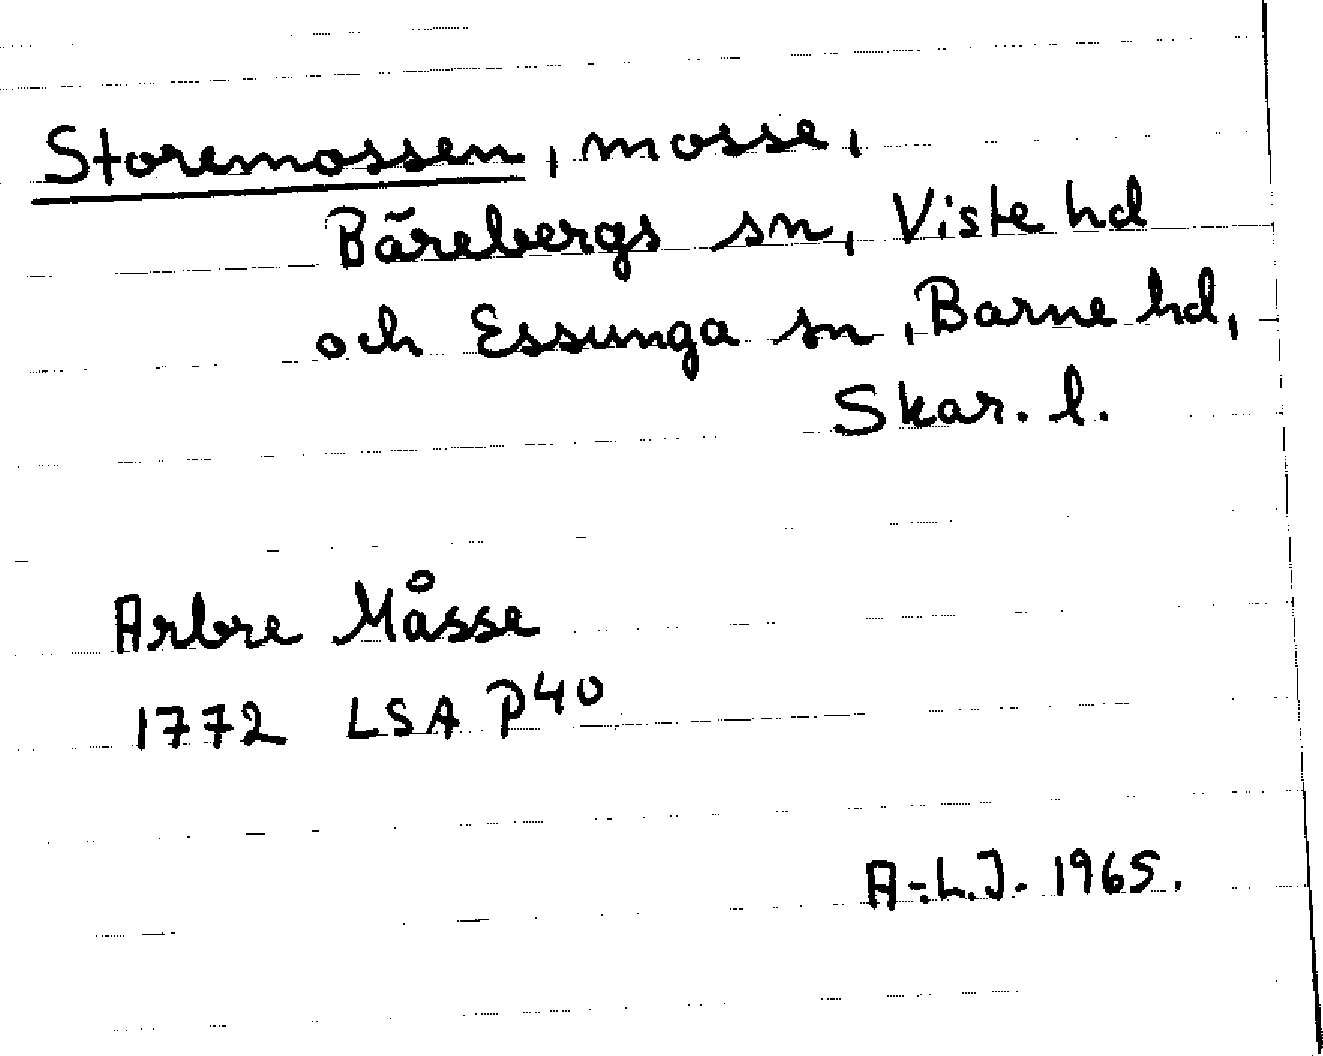 Storemossen, mosse,
Bärebergs sn, Viste hd
och Essunga sn, Barne hd,
Skar. l.
Arbre Måsse
1772 LSA P40
A-L.J. 1965.